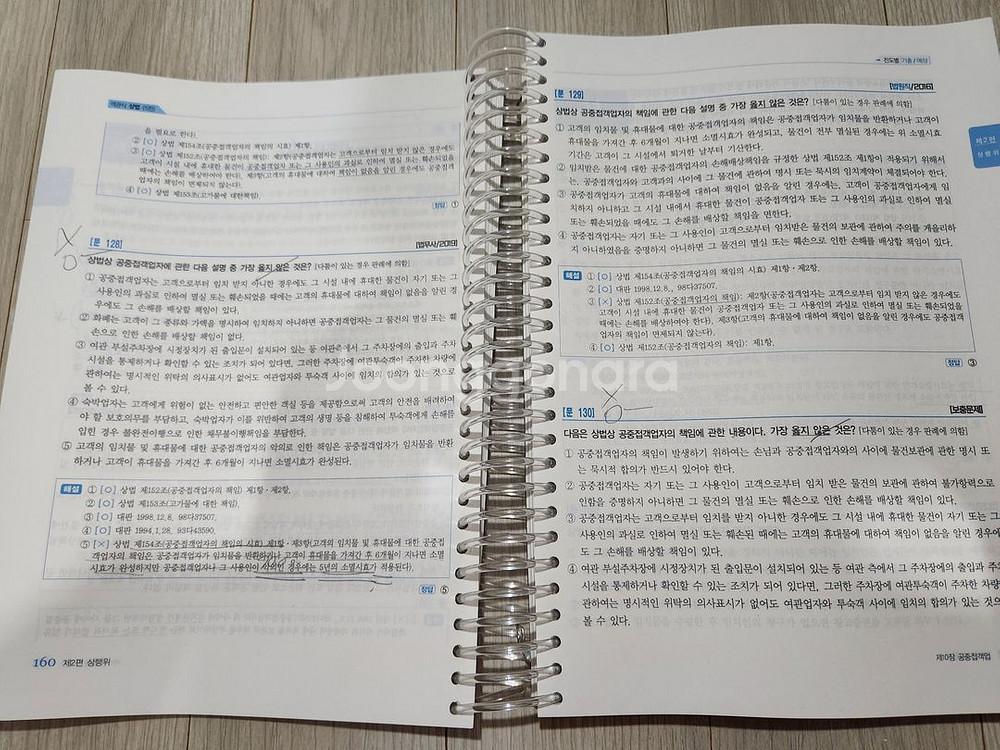 객관식 상법 (이론)
을 필요로 한다).
② [○] 상법 제154조(공중접객업자의 책임의 시효) 제1항.
③ [○] 상법 제152조(공중접객업자의 책임): 제2항(공중접객업자는 고객으로부터 임치 받지 않은 경우에도
고객이 시설 내에 휴대한 물건이 공중접객업자 또는 그 사용인의 과실로 인하여 멸실 또는 훼손되었을
때에는 손해를 배상하여야 한다), 제3항(고객의 휴대물에 대하여 책임이 없음을 알린 경우에도 공중접객
업자의 책임이 면제되지 않는다).
④ [○] 상법 제153조(고가물에 대한책임).
정답 ①
[문 128] [법무사/2019]
상법상 공중접객업자에 관한 다음 설명 중 가장 옳지 않은 것은? [다툼이 있는 경우 판례에 의함]
① 공중접객업자는 고객으로부터 임치받지 아니한 경우에도 그 시설 내에 휴대한 물건이 자기 또는 그
사용인의 과실로 인하여 멸실 또는 훼손되었을 때에는 고객의 휴대물에 대하여 책임이 없음을 알린 경
우에도 그 손해를 배상할 책임이 있다.
② 화폐는 고객이 그 종류와 가액을 명시하여 임치하지 아니하면 공중접객업자는 그 물건의 멸실 또는 훼
손으로 인한 손해를 배상할 책임이 없다.
③ 여관 부설주차장에 시정장치가 된 출입문이 설치되어 있는 등 여관측에서 그 주차장에의 출입과 주차
시설을 통제하거나 확인할 수 있는 조치가 되어 있다면, 그러한 주차장에 여관투숙객이 주차한 차량에
관하여는 명시적인 위탁의 의사표시가 없어도 여관업자와 투숙객 사이에 임치의 합의가 있는 것으로
볼 수 있다.
④ 숙박업자는 고객에게 위험이 없는 안전하고 편안한 객실 등을 제공함으로써 고객의 안전을 배려하여
야 할 보호의무를 부담하고, 숙박업자가 이를 위반하여 고객의 생명 등을 침해하여 투숙객에게 손해를
입힌 경우 불완전이행으로 인한 채무불이행책임을 부담한다.
⑤ 고객의 임치물 및 휴대물에 대한 공중접객업자의 악의로 인한 책임은 공중접객업자가 임치물을 반환
하거나 고객이 휴대물을 가져간 후 6개월이 지나면 소멸시효가 완성된다.
해설 ① [○] 상법 제152조(공중접객업자의 책임) 제1항·제2항.
② [○] 상법 제153조(고가물에 대한 책임).
③ [○] 대판 1998.12.8, 98다37507.
④ [○] 대판 1994.1.28, 93다43590.
⑤ [×] 상법 제154조(공중접객업자의 책임의 시효) 제1항·제3항(고객의 임치물 및 휴대물에 대한 공중접
객업자의 책임은 공중접객업자가 임치물을 반환하거나 고객이 휴대물을 가져간 후 6개월이 지나면 소멸
시효가 완성하지만 공중접객업자나 그 사용인이 악의인 경우에는 5년의 소멸시효가 적용된다).
정답 ⑤
160 제2편 상행위
진도별 기출/예상
[문 129] [법원직/2016]
상법상 공중접객업자의 책임에 관한 다음 설명 중 가장 옳지 않은 것은? [다툼이 있는 경우 판례에 의함]
① 고객의 임치물 및 휴대물에 대한 공중접객업자의 책임은 공중접객업자가 임치물을 반환하거나 고객이
휴대물을 가져간 후 6개월이 지나면 소멸시효가 완성되고, 물건이 전부 멸실된 경우에는 위 소멸시효
기간은 고객이 그 시설에서 퇴거한 날부터 기산한다.
② 임치받은 물건에 대한 공중접객업자의 손해배상책임을 규정한 상법 제152조 제1항이 적용되기 위해서
는, 공중접객업자와 고객과의 사이에 그 물건에 관하여 명시 또는 묵시의 임치계약이 체결되어야 한다.
③ 공중접객업자가 고객의 휴대물에 대하여 책임이 없음을 알린 경우에는, 고객이 공중접객업자에게 임
치하지 아니하고 그 시설 내에서 휴대한 물건이 공중접객업자 또는 그 사용인의 과실로 인하여 멸실
또는 훼손되었을 때에도 그 손해를 배상할 책임을 면한다.
④ 공중접객업자는 자기 또는 그 사용인이 고객으로부터 임치받은 물건의 보관에 관하여 주의를 게을리하
지 아니하였음을 증명하지 아니하면 그 물건의 멸실 또는 훼손으로 인한 손해를 배상할 책임이 있다.
해설 ① [○] 상법 제154조(공중접객업자의 책임의 시효) 제1항·제2항.
② [○] 대판 1998.12.8., 98다37507.
③ [×] 상법 제152조(공중접객업자의 책임): 제2항(공중접객업자는 고객으로부터 임치 받지 않은 경우에도
고객이 시설 내에 휴대한 물건이 공중접객업자 또는 그 사용인의 과실로 인하여 멸실 또는 훼손되었을
때에는 손해를 배상하여야 한다), 제3항(고객의 휴대물에 대하여 책임이 없음을 알린 경우에도 공중접객
업자의 책임이 면제되지 않는다).
④ [○] 상법 제152조(공중접객업자의 책임): 제1항.
정답 ③
[문 130] [보충문제]
다음은 상법상 공중접객업자의 책임에 관한 내용이다. 가장 옳지 않은 것은? [다툼이 있는 경우 판례에 의함]
① 공중접객업자의 책임이 발생하기 위하여는 손님과 공중접객업자와의 사이에 물건보관에 관한 명시 또
는 묵시적 합의가 반드시 있어야 한다.
② 공중접객업자는 자기 또는 그 사용인이 고객으로부터 임치 받은 물건의 보관에 관하여 불가항력으로
인함을 증명하지 아니하면 그 물건의 멸실 또는 훼손으로 인한 손해를 배상할 책임이 있다.
③ 공중접객업자는 고객으로부터 임치를 받지 아니한 경우에도 그 시설 내에 휴대한 물건이 자기 또는 그
사용인의 과실로 인하여 멸실 또는 훼손된 때에는 고객의 휴대물에 대하여 책임이 없음을 알린 경우에
도 그 손해를 배상할 책임이 있다.
④ 여관 부설주차장에 시정장치가 된 출입문이 설치되어 있는 등 여관 측에서 그 주차장에의 출입과 주차
시설을 통제하거나 확인할 수 있는 조치가 되어 있다면, 그러한 주차장에 여관투숙객이 주차한 차량
관하여는 명시적인 위탁의 의사표시가 없어도 여관업자와 투숙객 사이에 임치의 합의가 있는 것으
볼 수 있다.
제10장 공중접객업
제2편
상행위